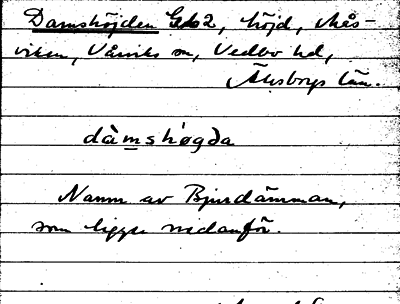 Damshöjden Gb2, höjd, Mås-
viken, Vårviks sn, Vedbo hd,
Älvsborgs län.
dàmshøgda
Namn av Bjurdämman,
som ligger nedanför.